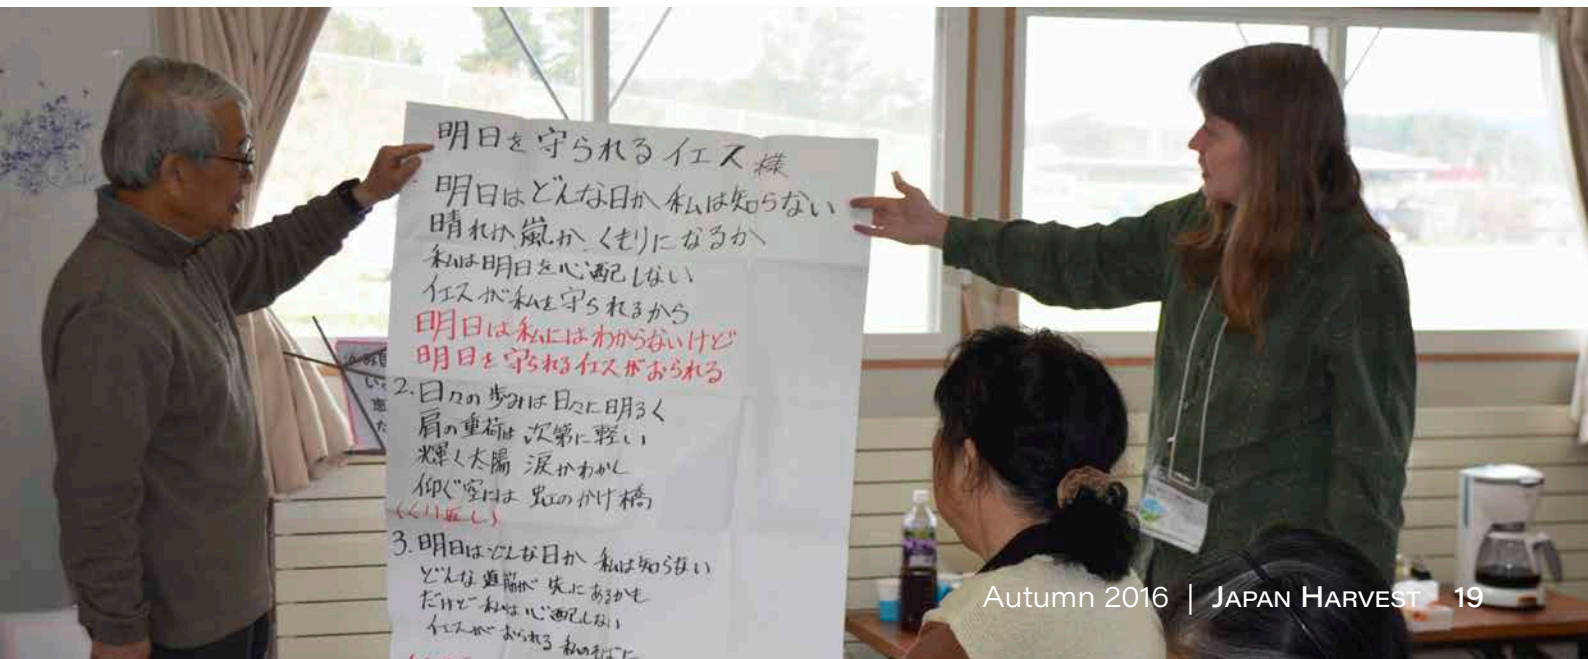 明日を守られるイエス様
明日はどんな日か 私は知らない
晴れか 嵐か くもりになるか
私は明日を心配しない
イエスが私を守られるから
明日は私にはわからないけど
明日を守られるイエスがおられる
2. 日々の歩みは日々に明るく
肩の重荷は 次第に軽い
輝く太陽 涙かわかし
仰ぐ空には 虹のかけ橋
(くり返し)
3. 明日はどんな日か 私は知らない
どんな道が 先にあるかも
だけど私は心配しない
イエスがおられる 私のそばに
Autumn 2016 | JAPAN HARVEST 19